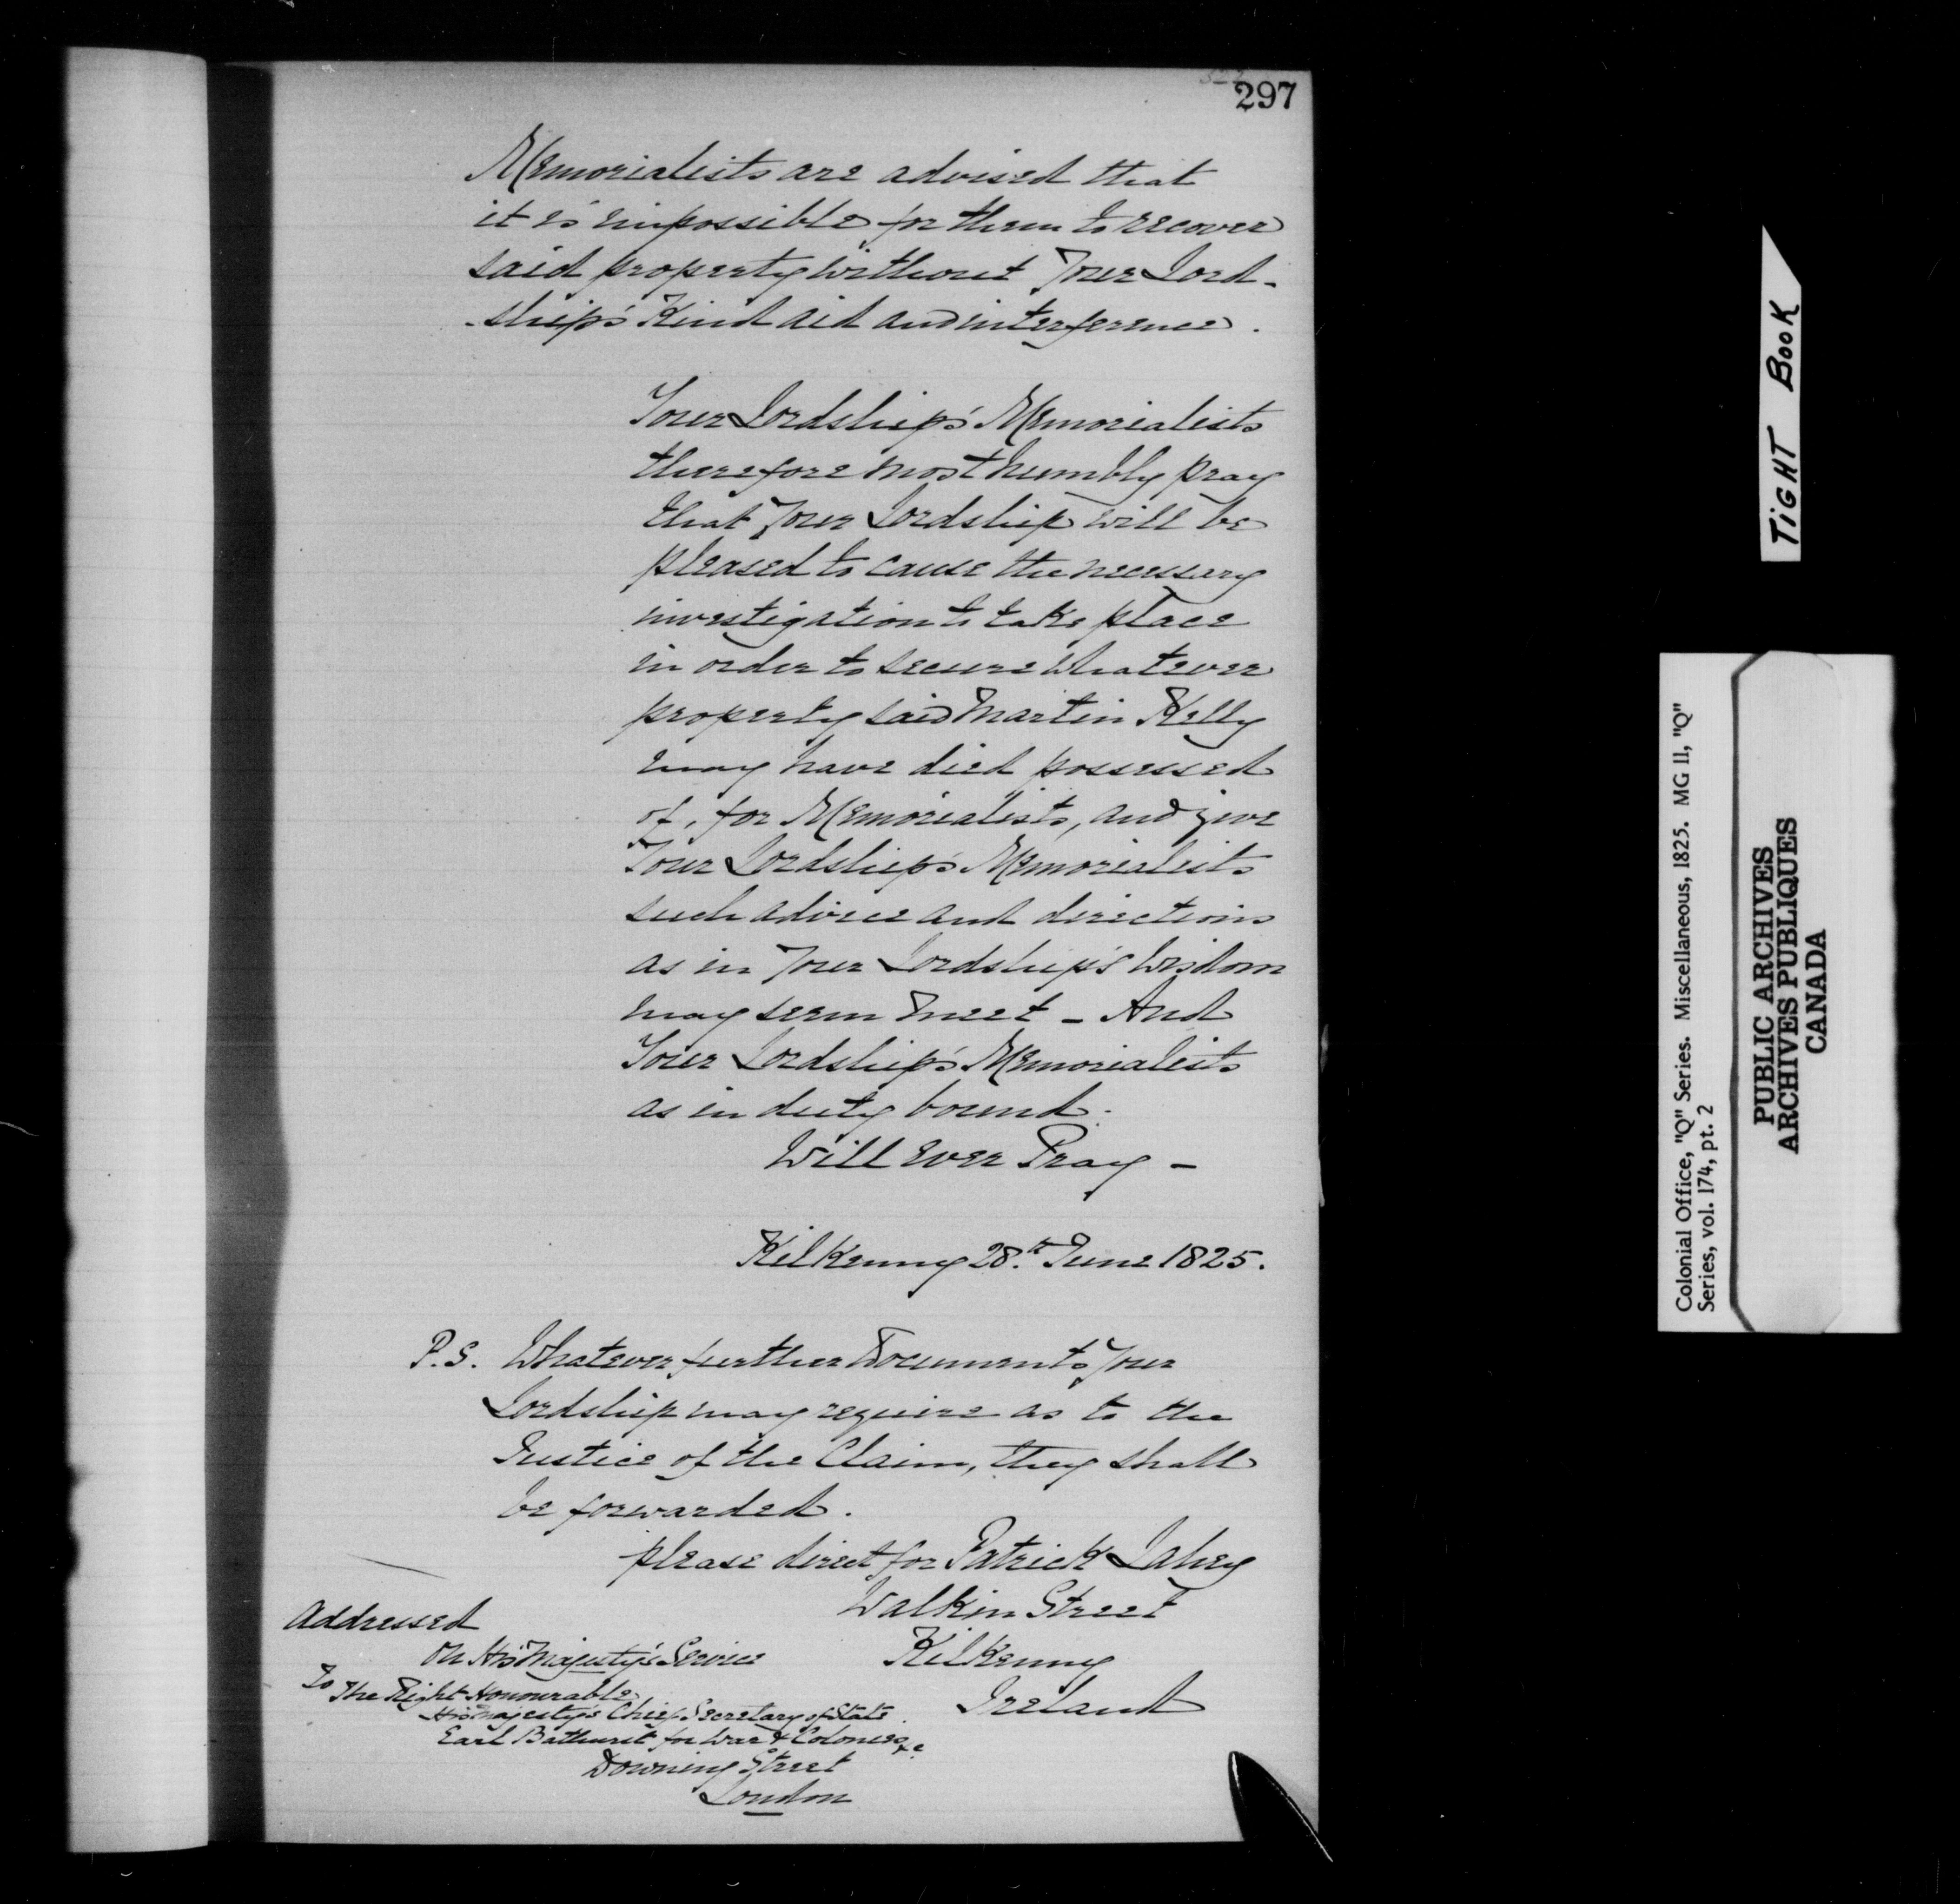 297
Memorialists are advised that
it is impossible for them to recover
said property without Your Lord-
-ship's Kind aid and interference.
Your Lordship's Memorialists
therefore most humbly pray
that Your Lordship will be
pleased to cause the necessary
investigation to take place
in order to secure whatever
property said Martin Kelly
may have died possessed
of, for Memorialists, and give
Your Lordship's Memorialists
such advice and directions
as in Your Lordship's Wisdom
may seem meet - And
Your Lordship's Memorialists
as in duty bound.
Will ever Pray -
Kilkenny 28th June 1825.
P.S. Whatever further Documents Your
Lordship may require as to the
Justice of the Claim, they shall
be forwarded.
please direct for Patrick Lahey
Walkin Street
Kilkenny
Ireland
Addressed
On His Majesty's Service
To The Right Honourable
His Majesty's Chief Secretary of State
Earl Bathurst for War & Colonies &c
Downing Street
London
TIGHT BOOK
Colonial Office, "Q" Series. Miscellaneous, 1825. MG 11, "Q"
Series, vol. 174, pt. 2
PUBLIC ARCHIVES
ARCHIVES PUBLIQUES
CANADA